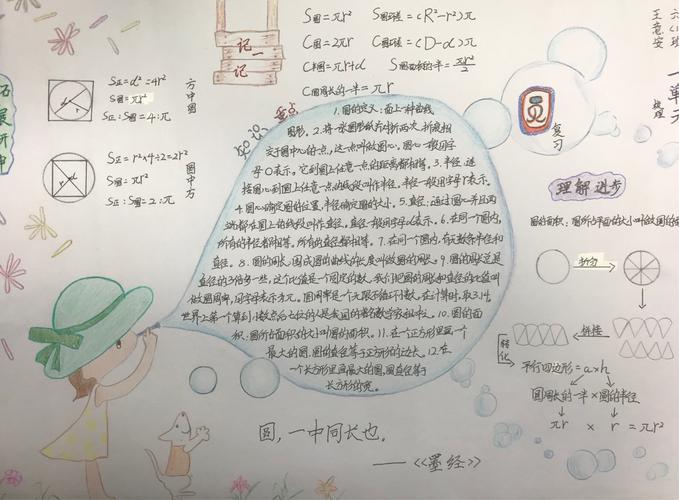 S圆=πr²
S圆环=(R²-r²)π
C圆=2πr
C圆环=(D-d)π
C半圆=πr+d
S圆面积的一半=πr²/2
C圆周长的一半=πr
记一记
拓展研申
S正=d²=4r²
S圆=πr²
S正:S圆=4:π
方中圆
S正=r²×4÷2=2r²
S圆=πr²
S正:S圆=2:π
圆中方
重点
知识
1.圆的定义:面上一种曲线
图形。2.将一张圆形纸片对折两次,折痕相
交于圆中心的一点,这一点叫做圆心。圆心一般用字
母O表示。它到圆上任意一点的距离都相等。3.半径:连
接圆心到圆上任意一点的线段叫作半径。半径一般用字母r表示。
4.圆心确定圆的位置,半径确定圆的大小。5.直径:通过圆心并且两
端都在圆上的线段叫作直径。直径一般用字母d表示。6.在同一个圆内,
所有的半径都相等,所有的直径都相等。7.在同一个圆内,有无数条半径和
直径。8.圆的周长:围成圆的曲线的长度叫做圆的周长。9.圆的周长总是
直径的3倍多一些,这个比值是一个固定的数。我们把圆的周长和直径的比值叫
做圆周率,用字母表示为π。圆周率是一个无限不循环小数。在计算时,取3.14。
世界上第一个算到小数点后七位的人是我国的著名数学家祖冲之。10.圆的面
积:圆所占面积的大小叫圆的面积。11.在一个正方形里画一个
最大的圆,圆的直径等于正方形的边长。12.在
一个长方形里画最大的圆,圆直径等于
长方形的宽。
圆
复习
王意安
六
班
单元
整理
理解进步
圆的面积:圆所占平面的大小叫做圆的
折匀
拼接
转化
平行四边形=a×h
圆周长的一半×圆的半径
πr × r = πr²
圆,一中同长也。
——《墨经》